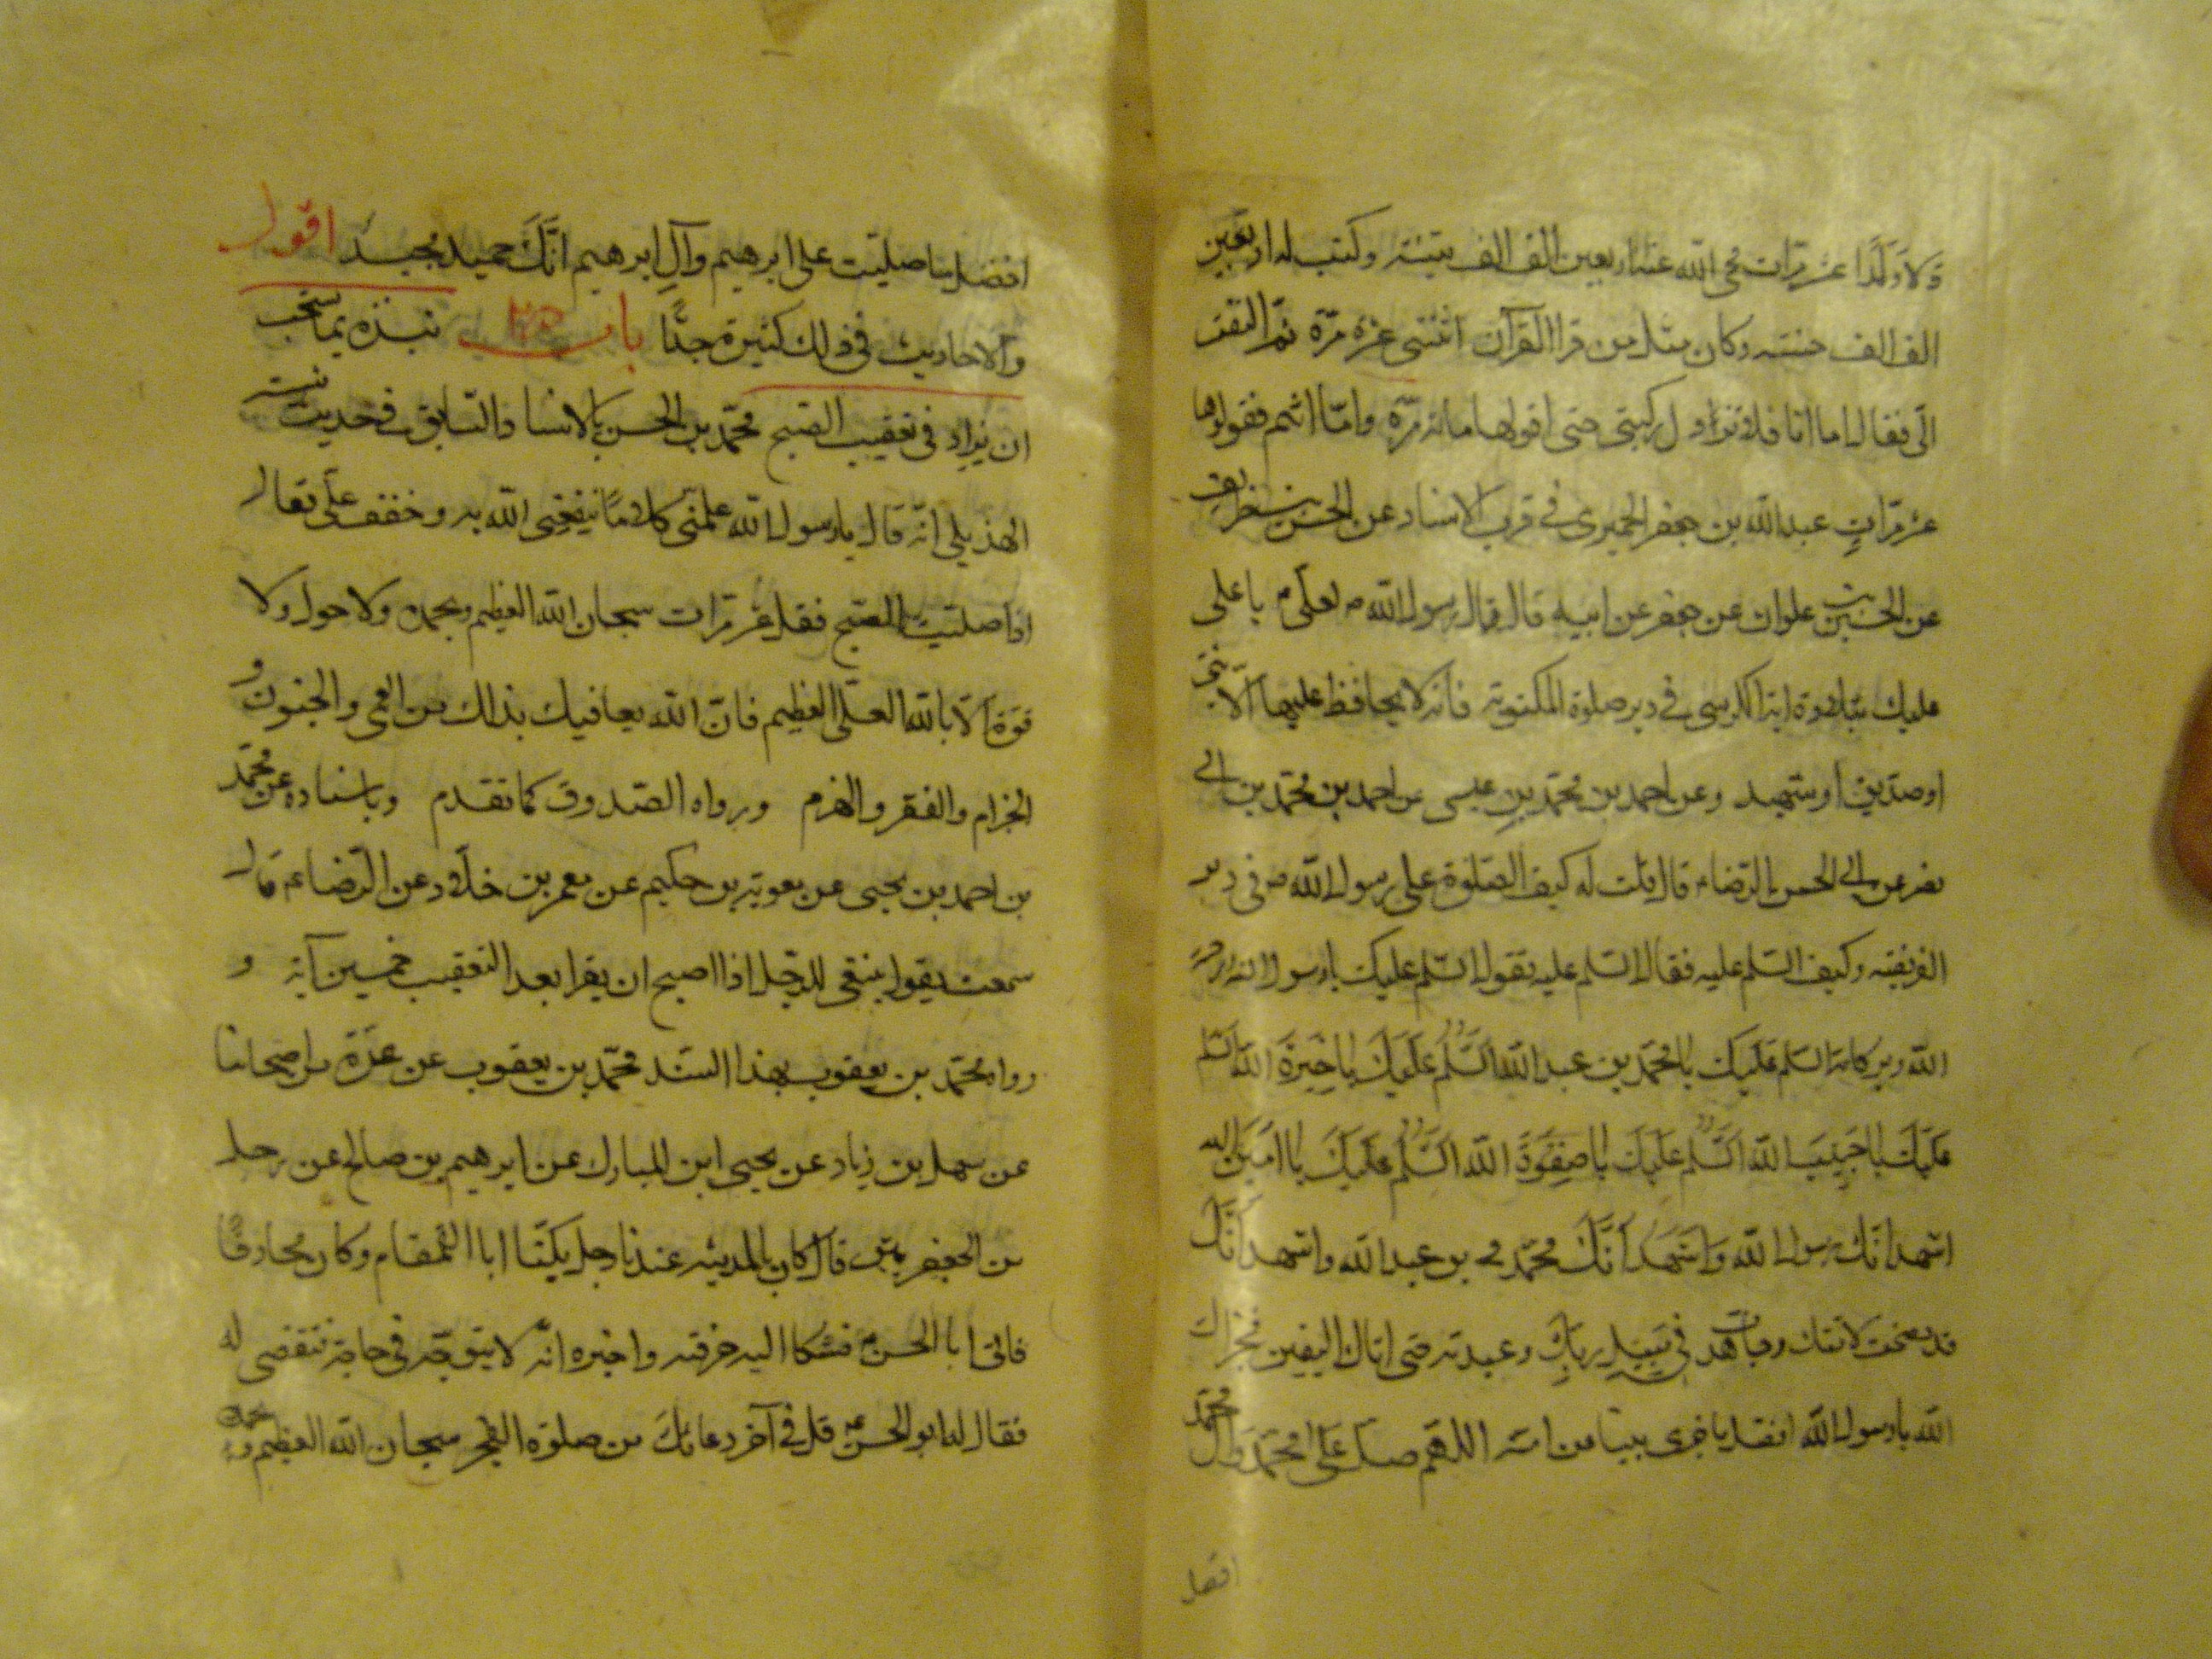 ولا ولدا عشر مرات محى الله عنه اربعين الف الف سيئة وكتب له اربعين
الف الف حسنة وكان مثل من قرا القرآن اثنتى عشرة مرة ثم التفت
الى فقال اما انا فلا تزول ركبتى حتى اقولها مائة مرة واما انتم فقولوها
عشر مرات عبد الله بن جعفر الحميرى فى قرب الاسناد عن الحسن بن ظريف
عن الحسين بن علوان عن جعفر عن ابيه قال قال رسول الله ص لعلى م يا على
عليك بتلاوة اية الكرسى فى دبر صلوة المكتوبة فانه لا يحافظ عليها الا نبى
او صديق او شهيد وعن احمد بن محمد بن عيسى عن احمد بن محمد بن ابى
نصر عن ابى الحسن الرضا ء قال قلت له كيف الصلوة على رسول الله ص فى دبر
الفريضة وكيف السلم عليه فقال السلم عليه تقول السلم عليك يا رسول الله ورحمة
الله وبركاته السلم عليك يا محمد بن عبد الله السَّلَم عَلَيكَ يا خِيَرَةَ الله السلم
عَلَيكَ يا حَبِيبَ الله السَّلم عَلَيكَ يا صِفوَةَ الله السَّلم عليكَ يا امِينَ الله
اشهد انك رسول الله وَاَشهَدُ اَنَّكَ محمّد بن عبد الله واشهد اَنَّكَ
قد نصحت لامتك وجاهدت فى سَبيلِ ربِّكَ وعبدته حتى اتاك اليقين فجزاك
الله يا رسول الله افضل ما جزى نبيا عن امته اللهمّ صلّ عَلَى محمّد وَآل محمّد
افضل
افضل ما صليت على ابرهيم وآلِ ابرهيم انّكَ حميد مجيد اقول
والاحاديث فى ذلك كثيرة جدًّا باب ٢٥ نبذة مما يستحب
ان يزاد فى تعقيب الصبح محمّد بن الحسن بالاسنا والسّابق فى حديث شيبة
الهذيلى انّه قال يا رسول الله علمنى كلامًا ينفعنى الله به وخفف علَى فقال
اذا صليت الصبح فقل عشر مرات سبحان الله العظيم وبحمده ولا حول ولا
قوة الّا بالله العلّى العظيم فان الله يعافيك بذلك من العمى والجنون و
الجزام والفقر والهرم ورواه الصّدوق كما تقدم وباسناده عن محمّد
بن احمد بن يحيى عن معوية بن حكيم عن معمر بن خلّاد عن الرّضا ع قال
سمعته يقول ينبغى للرّجل اذا اصبح ان يقرا بعد التعقيب خمسين آية و
رواه محمّد بن يعقوب بهذا السّند محمّد بن يعقوب عن عدّة من اصحابنا
عن سهل بن زياد عن يحيى ابن المبارك عن ابرهيم بن صالح عن رجل
من الجعفريين قال كان بالمدينه عندنا رجل يكنّا ابا القمقام وكان محارفًا
فاتى ابا الحسن فشكا اليه حرفته واخبره انّه لا يتوجّه فى حاجة فتقضى له
فقال له ابو الحسن قل فى آخر دعائك من صلوة الفجر سبحان الله العظيم وبحمده